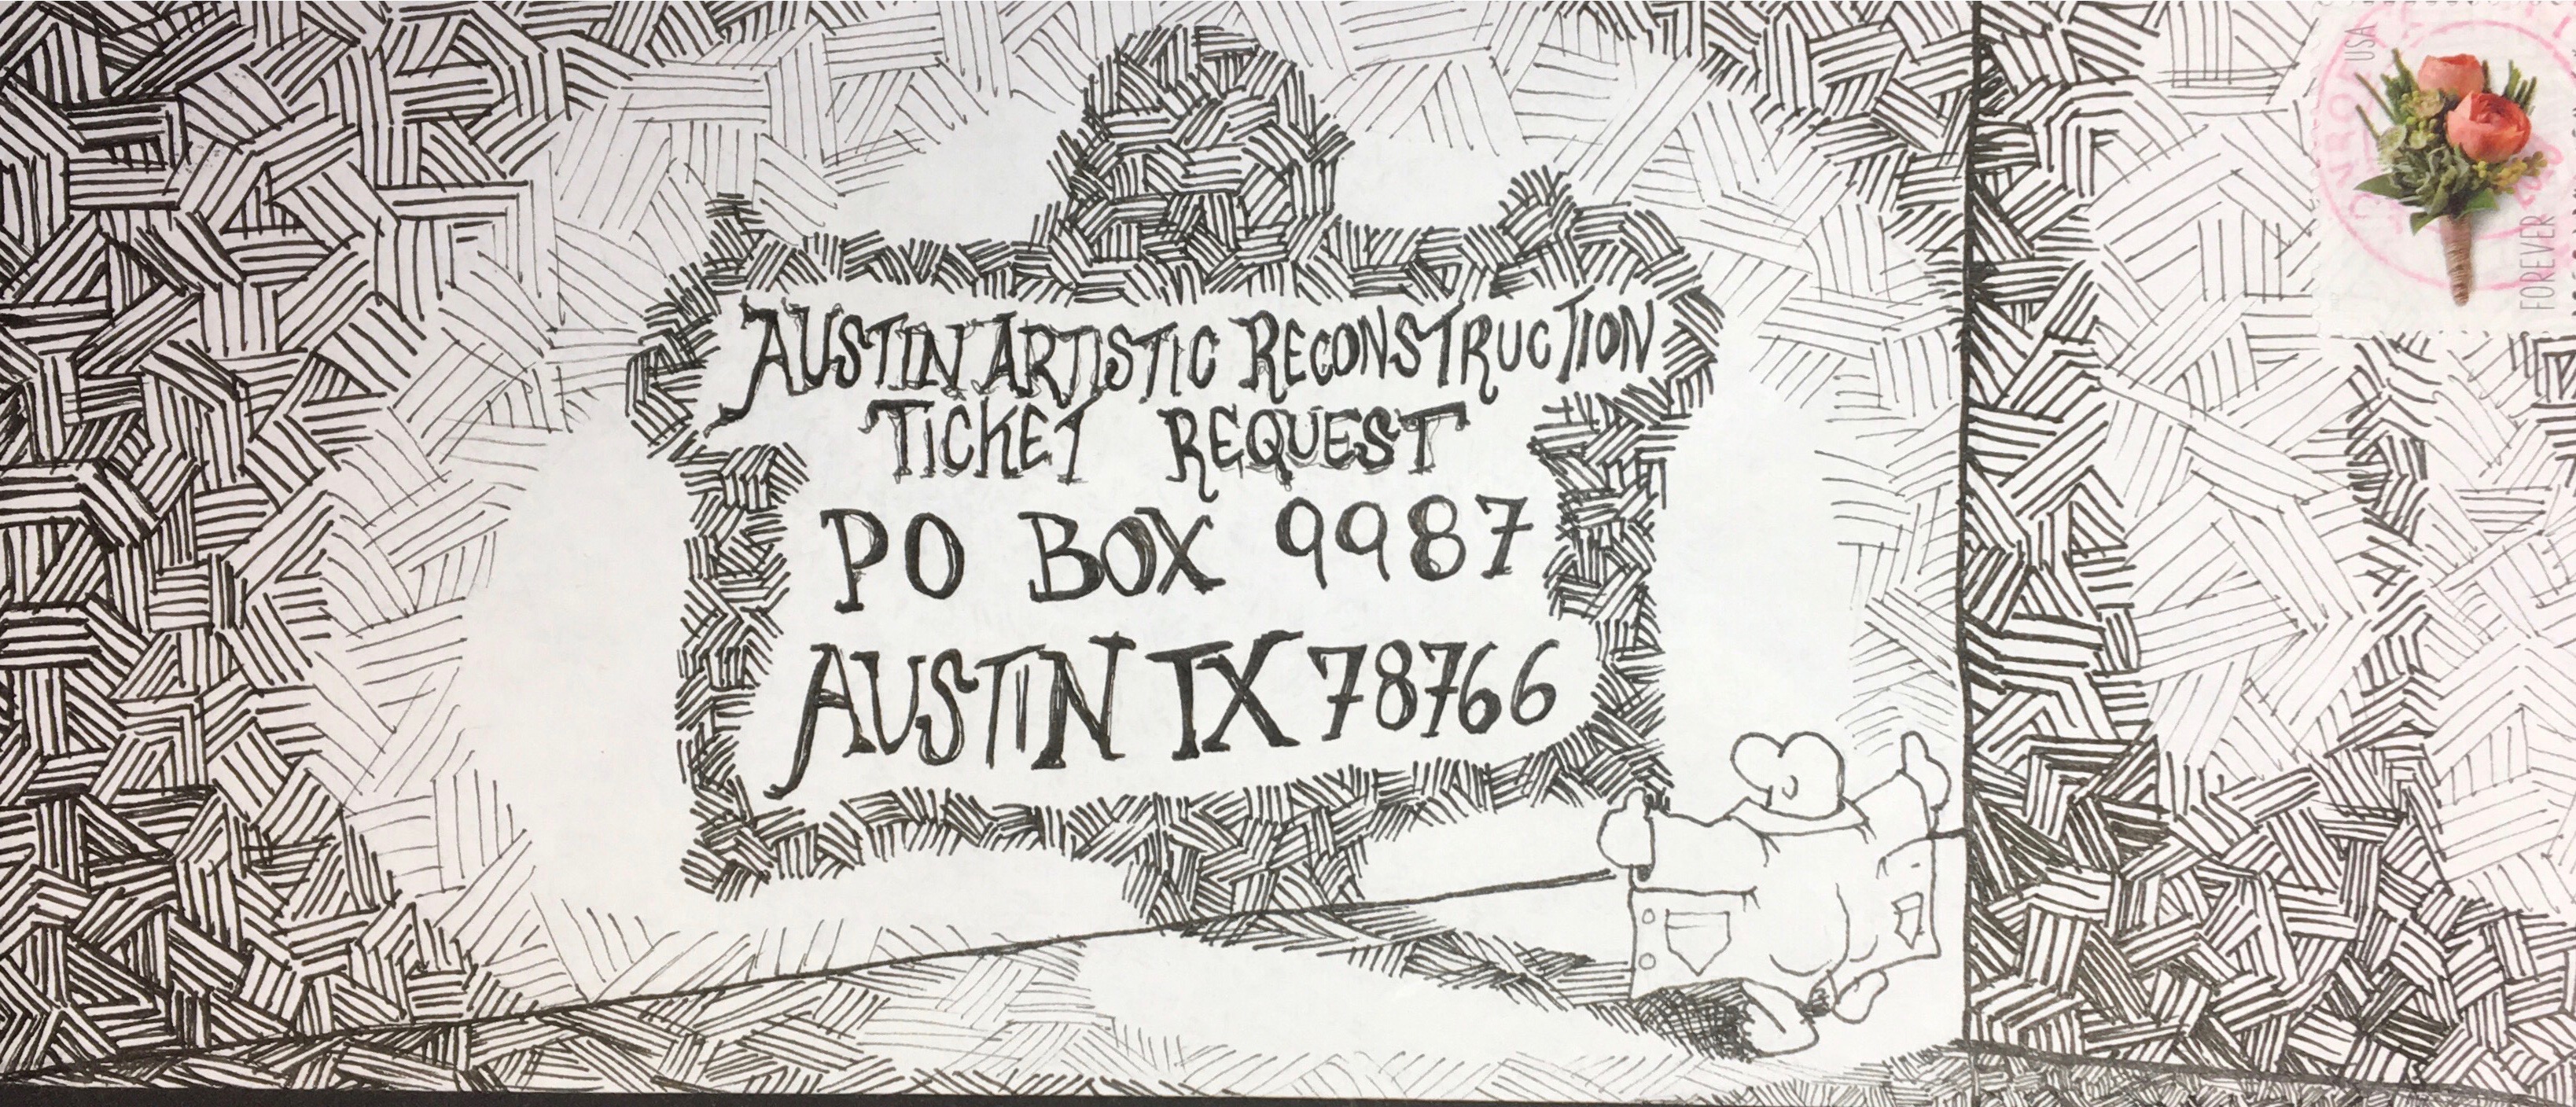 AUSTIN ARTISTIC RECONSTRUCTION
TICKET REQUEST
PO BOX 9987
AUSTIN TX 78766
USA
FOREVER